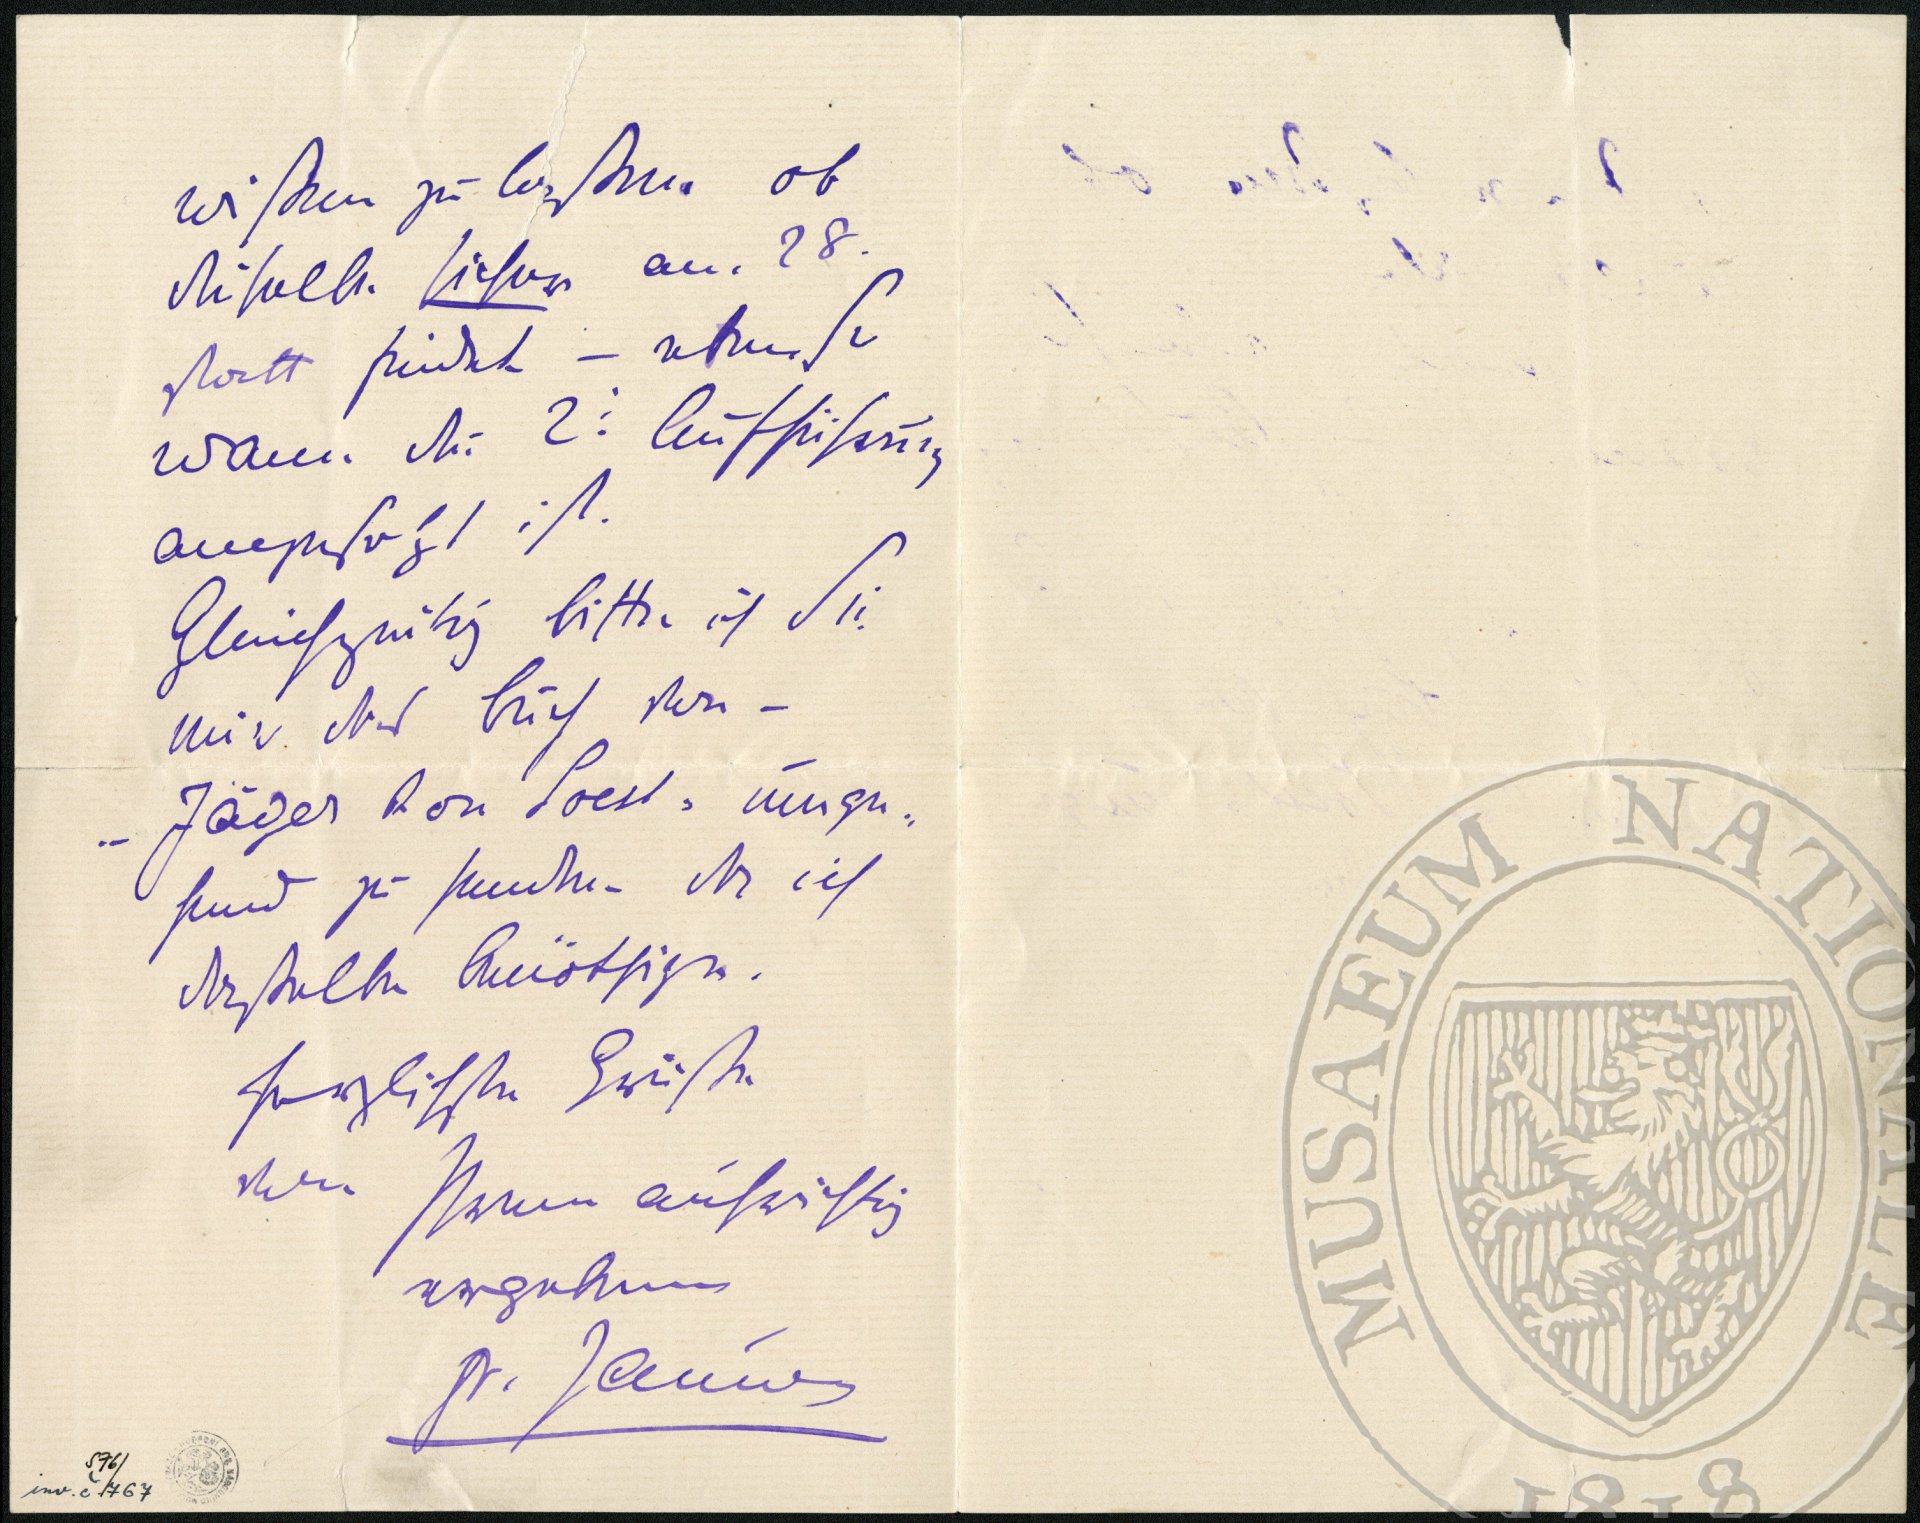 wissen zu lassen ob
dieselbe sicher am 28.
statt findet – ebenso
wann die 2te Aufführung
angesetzt ist.
Gleichzeitig bitte ich Sie
mir das Buch von –
„Jäger von Soest" umge-
hend zu senden da ich
dasselbe benöthige.
Herzlichste Grüße
von Ihrem aufrichtig
ergebenen
Fr.
576/
inv. č 1767
MUSAEUM NATIONALE
1818